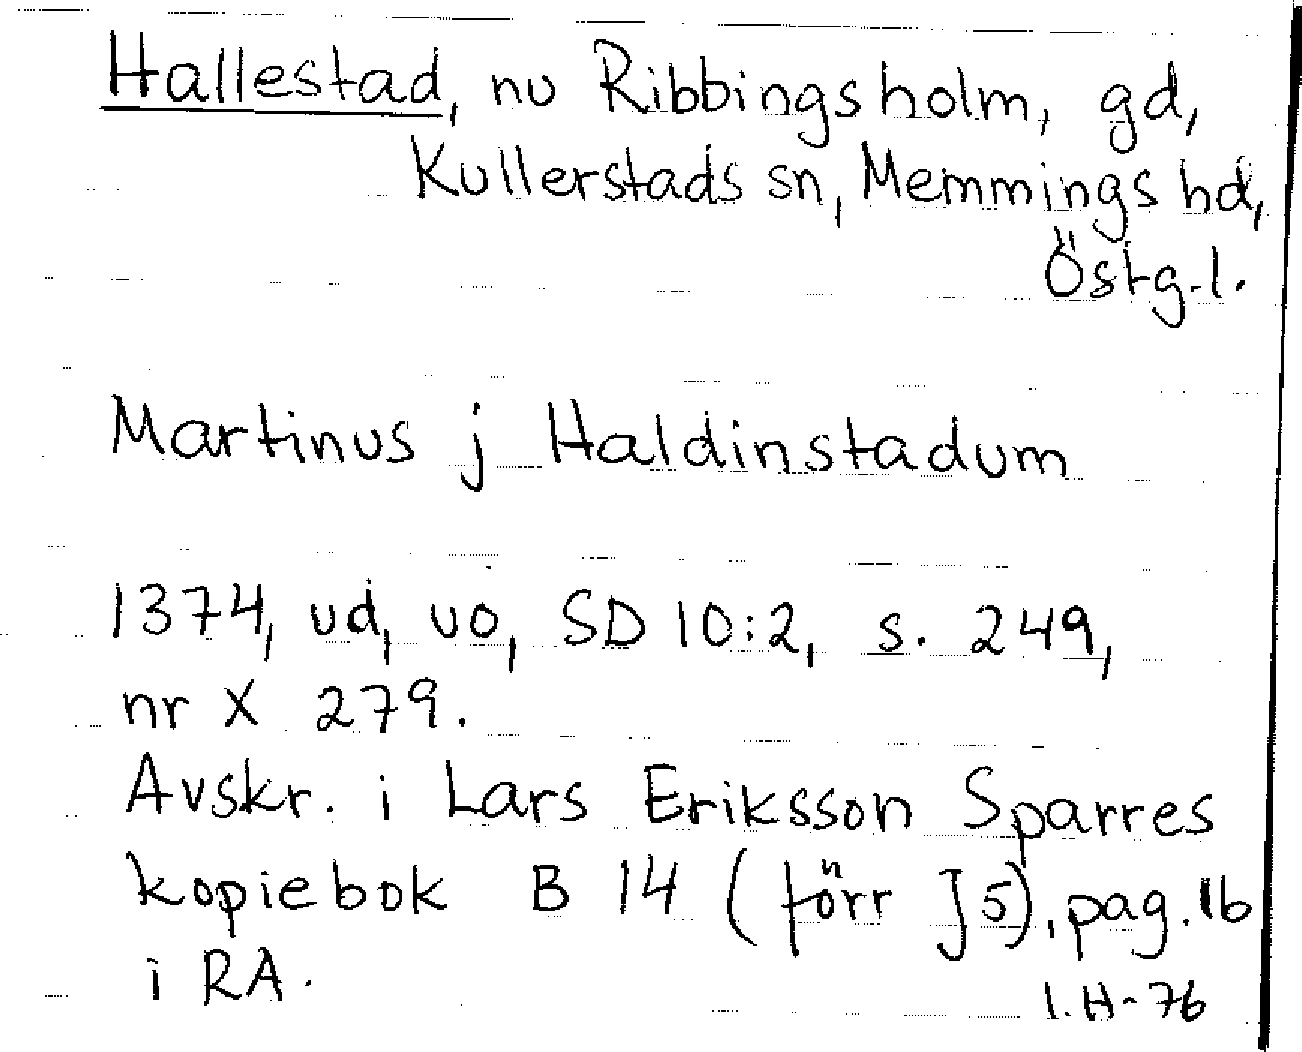 Hallestad, nu Ribbingsholm, gd,
Kullerstads sn, Memmings hd,
Östg.l.
Martinus j Haldinstadum
1374, ud, uo, SD 10:2, s. 249,
nr X 279.
Avskr. i Lars Eriksson Sparres
kopiebok B 14 (förr J5), pag. 16
i RA.
I.H-76